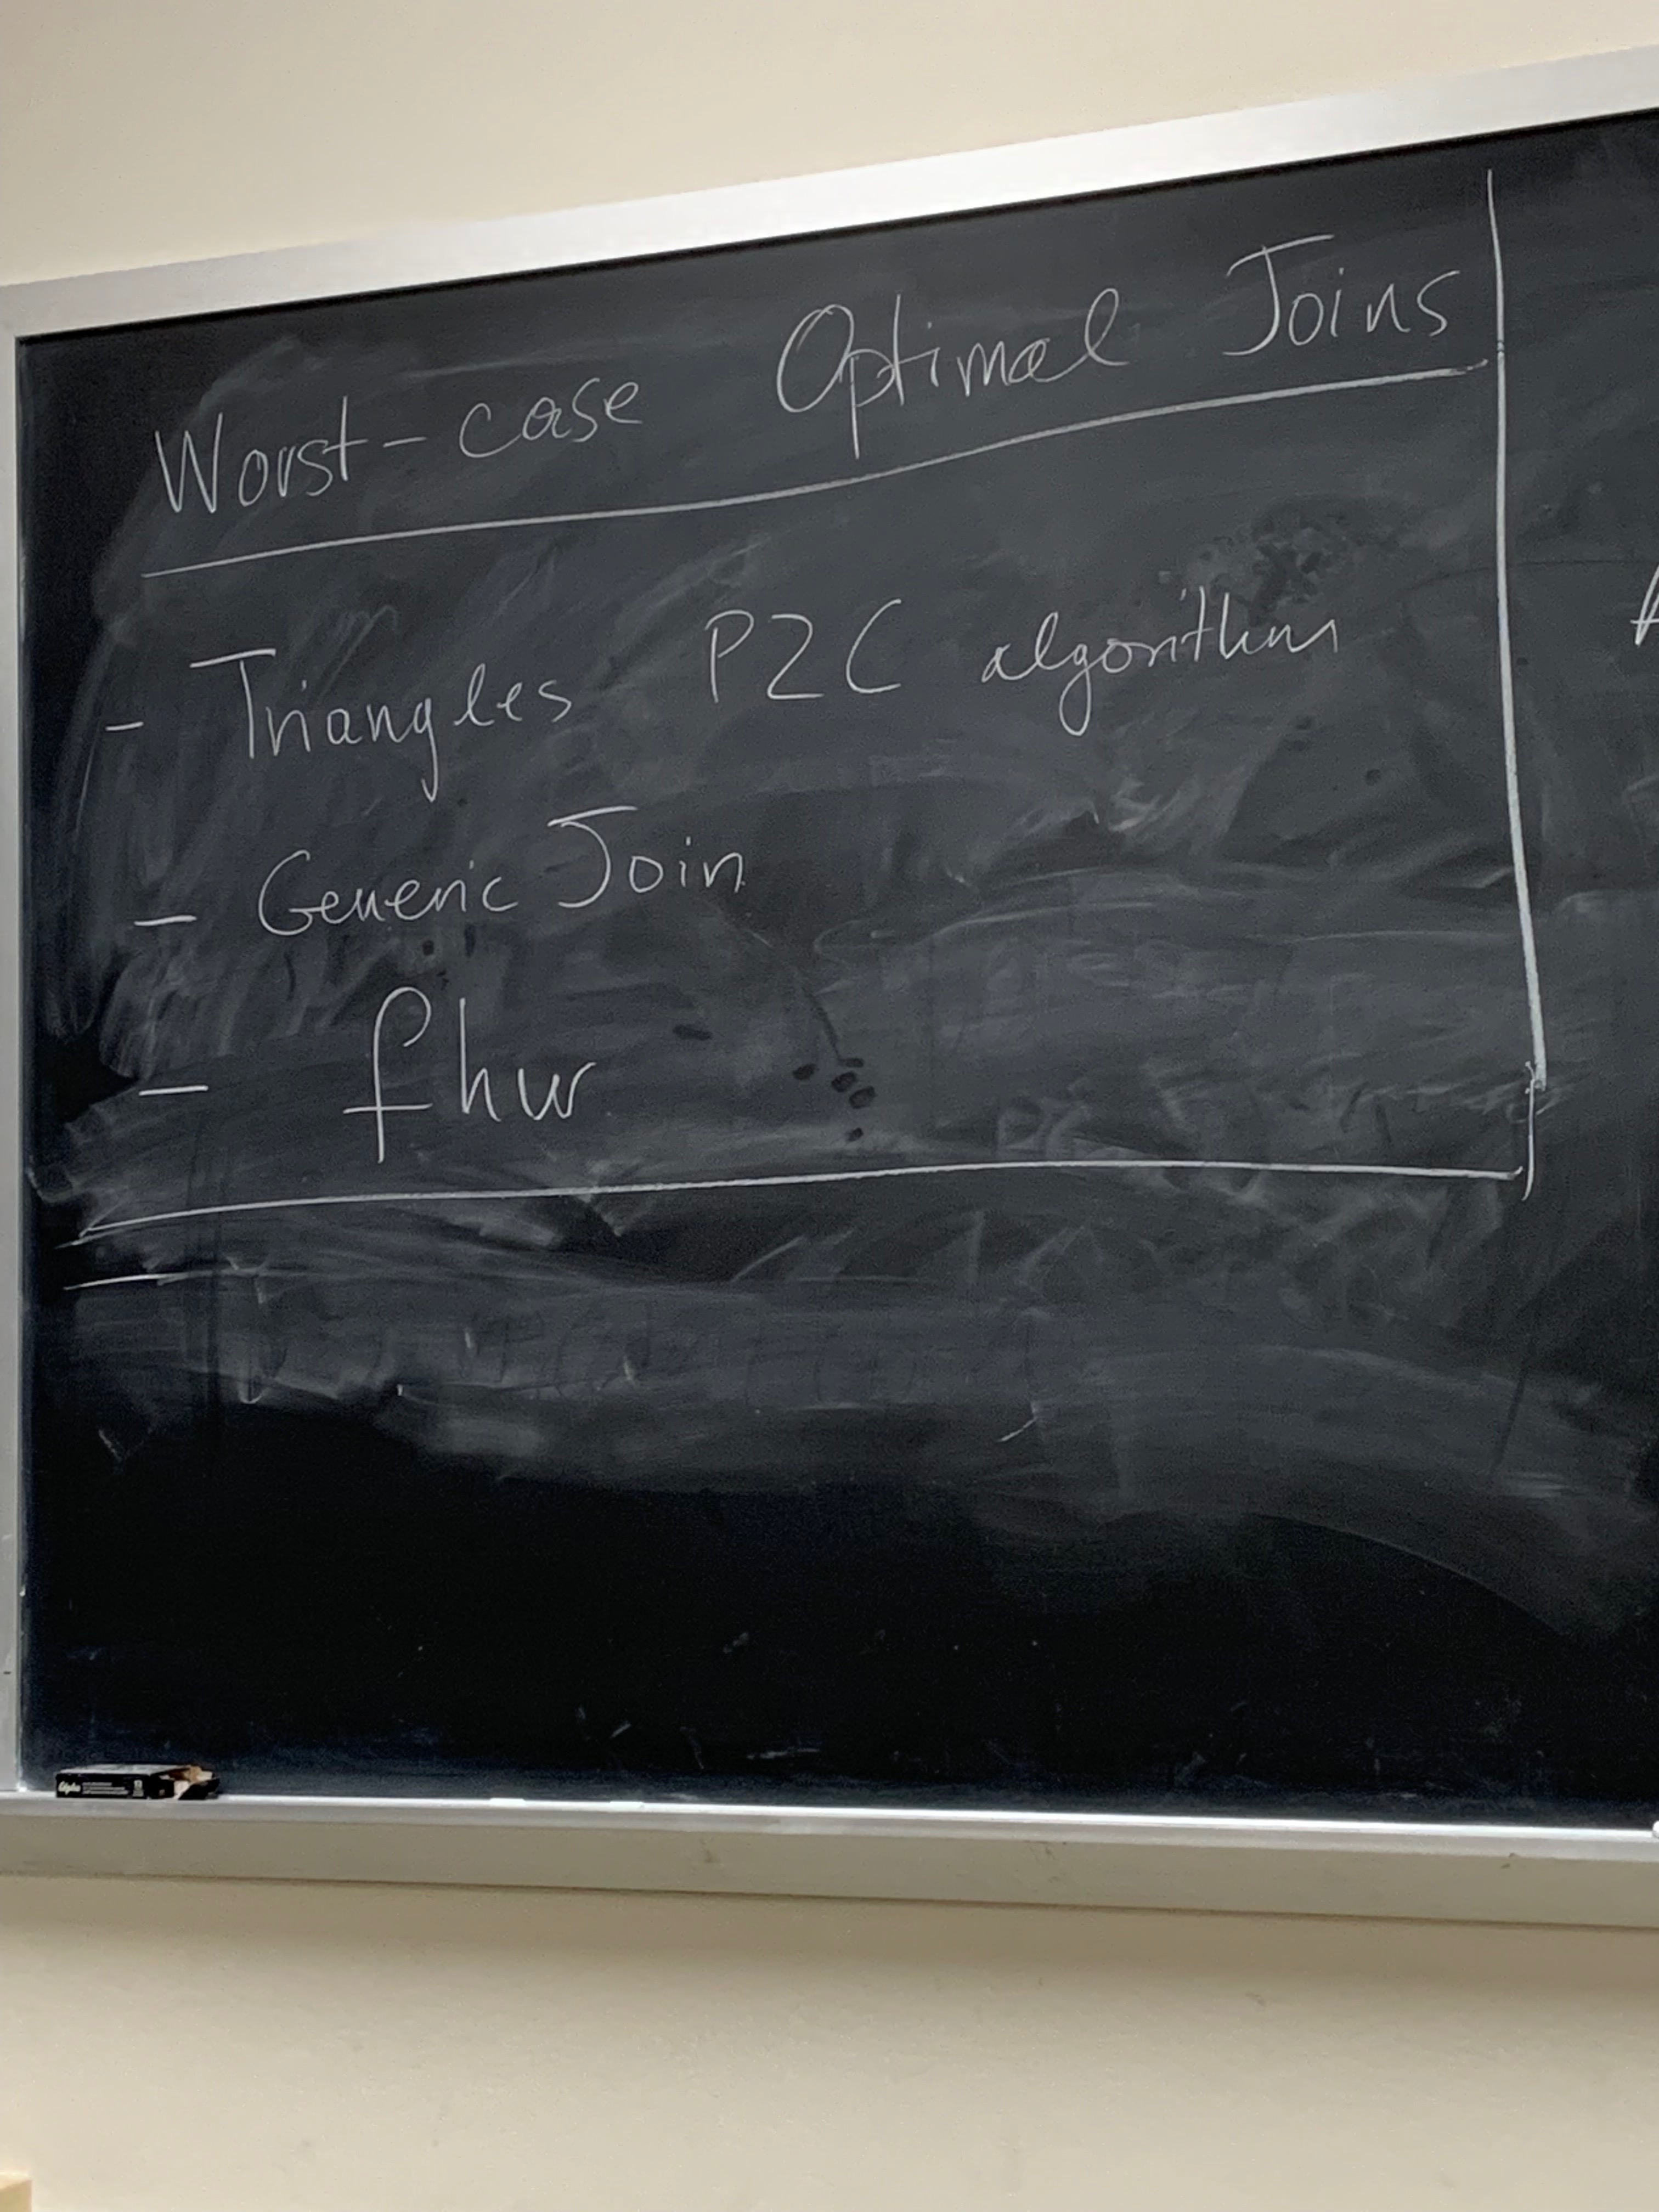 Worst-case Optimal Joins
- Triangles P2C algorithm
- Generic Join
- fhw